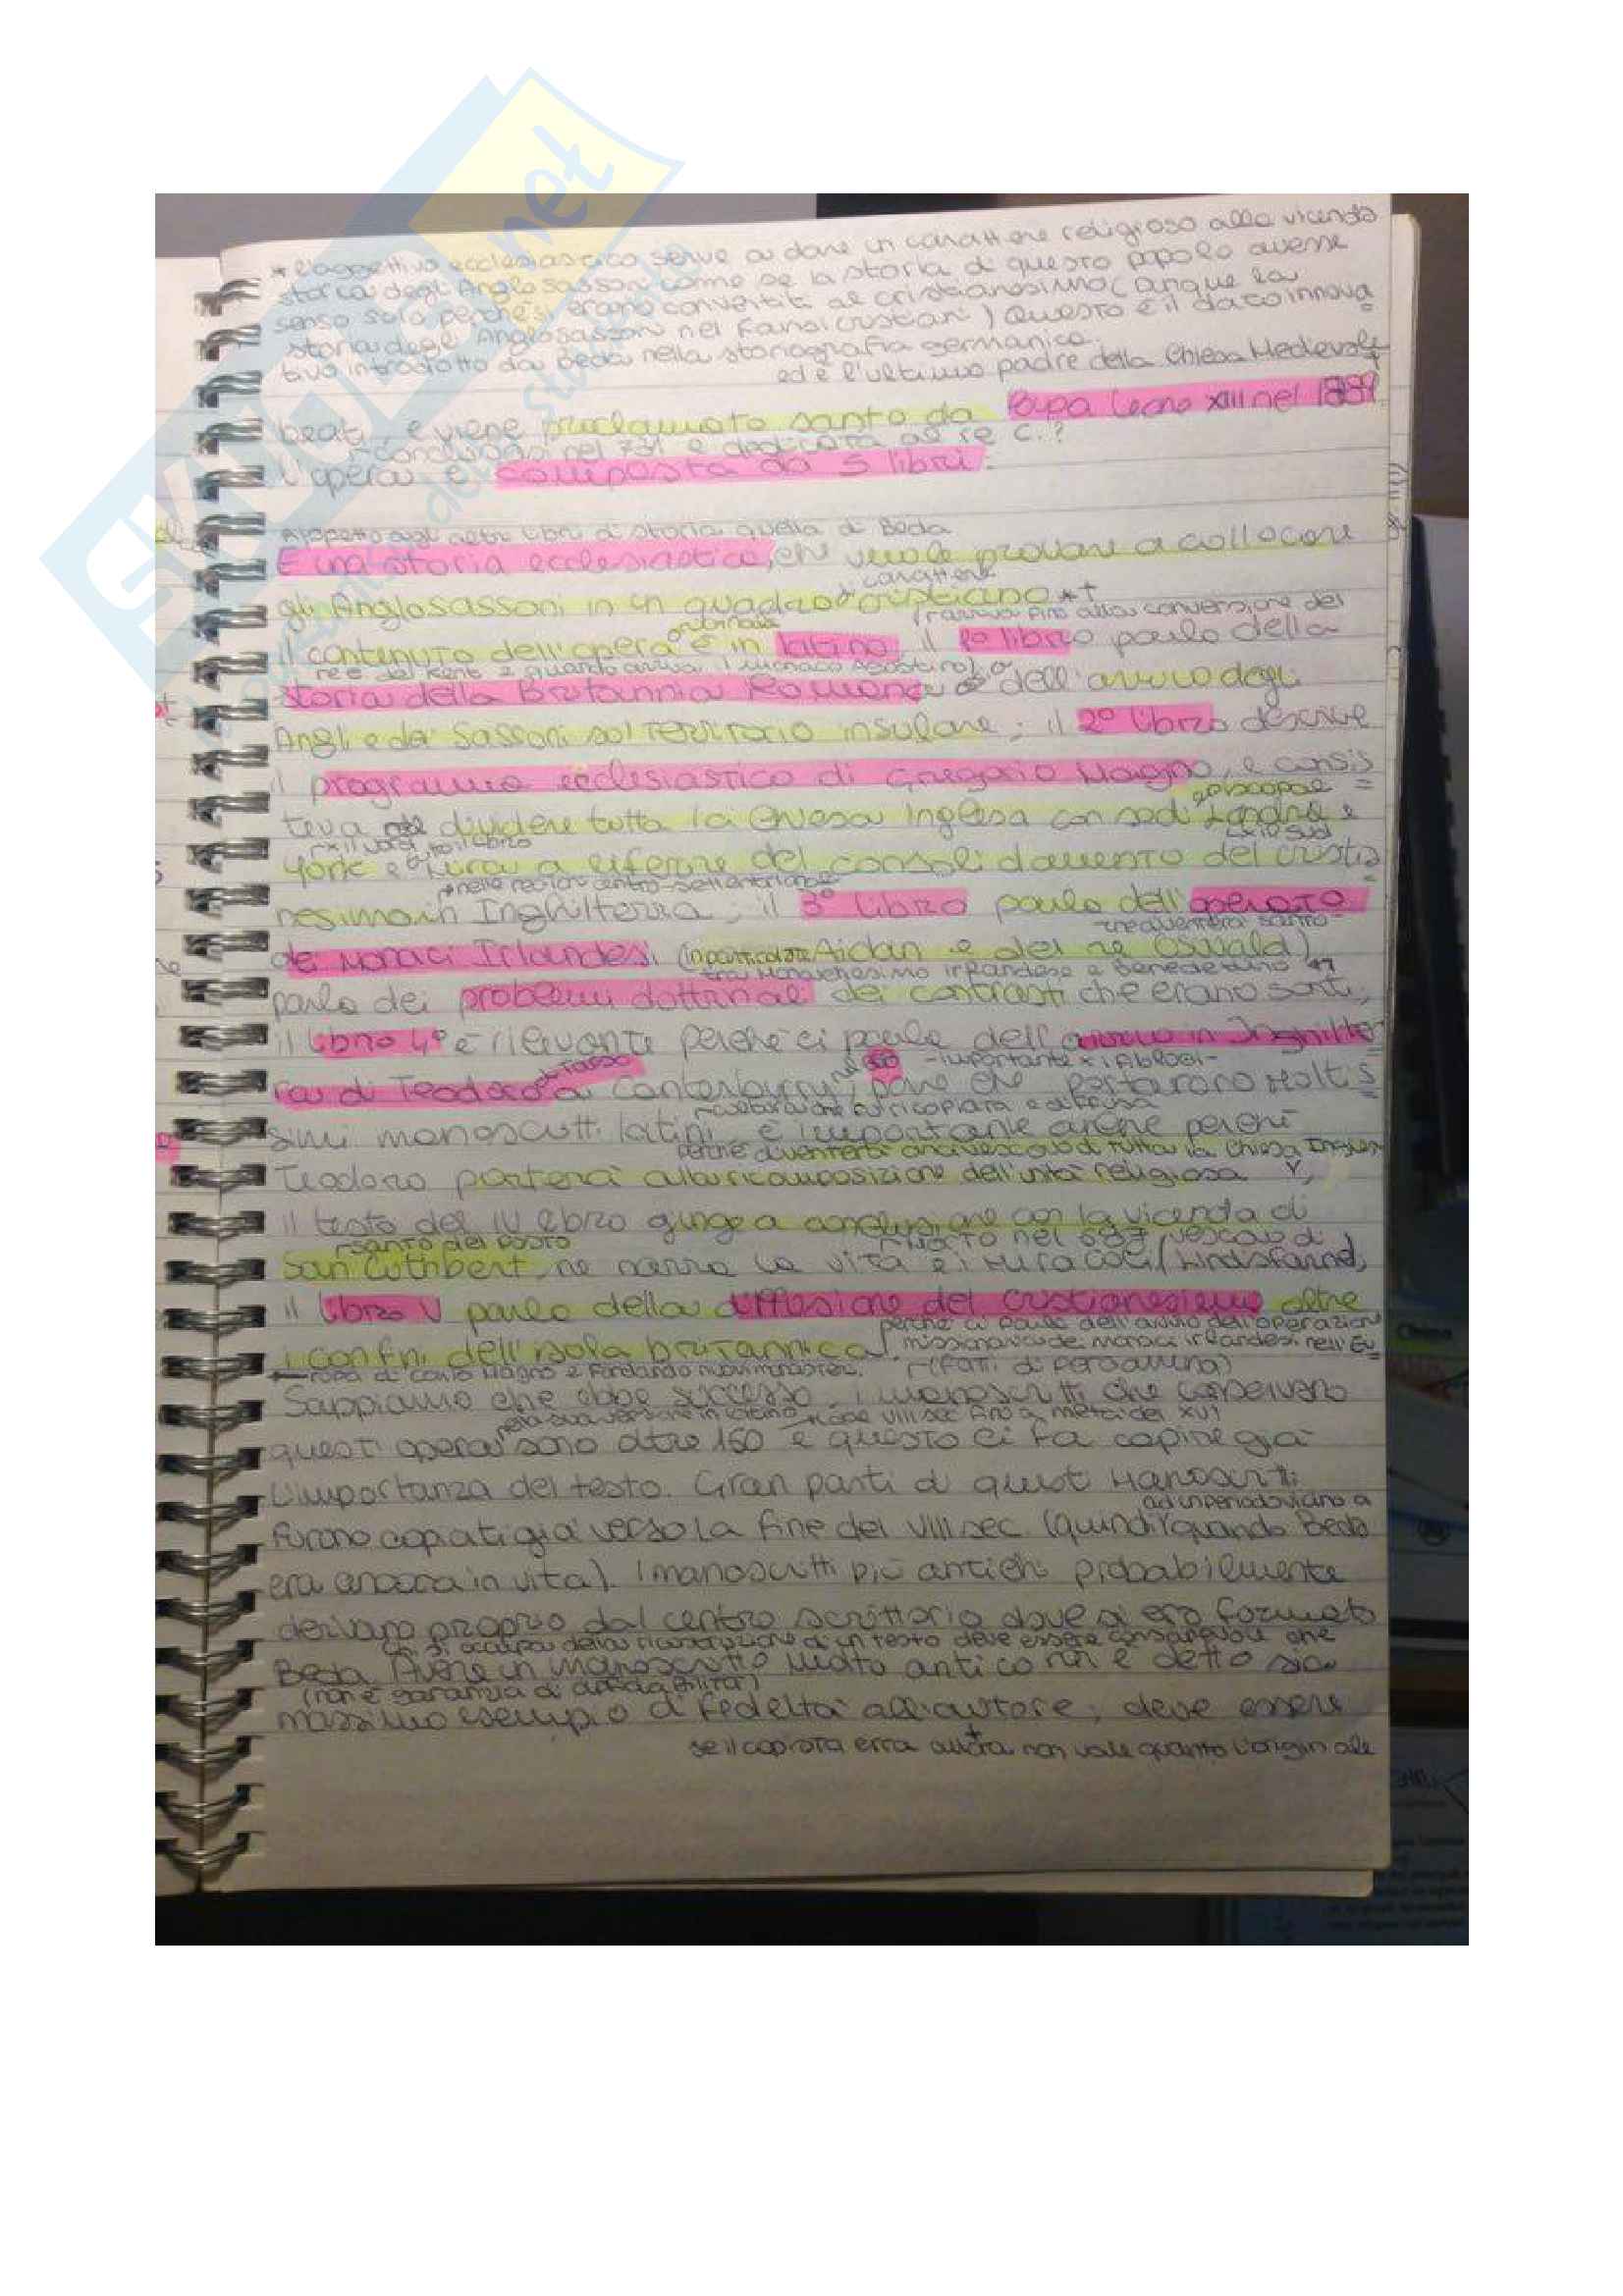 * l'aggettivo ecclesiastico serve a dare un carattere religioso alla vicenda
storica degli Anglosassoni come se la storia di questo popolo avesse
senso solo perché si erano convertiti al cristianesimo (dunque la
storia degli Anglosassoni nei fatti cristiani) Questo è il dato innova
tivo introdotto da Beda nella storiografia germanica.
ed è l'ultimo padre della Chiesa Medievale
beat, e viene proclamato santo da Papa Leone XIII nel
conclusasi nel 731 e dedicata al re C.?
L'opera è composta da 5 libri.
Rispetto agli altri libri di storia quella di Beda
È una storia ecclesiastica, che vuole provare a collocare
di carattere
gli Anglosassoni in un quadro cristiano *+
originale
narra fino alla conversione del
il contenuto dell'opera è in latino, il 1º libro parla della
re e del Kent e quando arriva il monaco Agostino)
storia della Britannia Romana e dell'arrivo degli
Angli e dei Sassoni sul territorio insulare; il 2º libro descrive
il programma ecclesiastico di Gregorio Magno, e consis
episcopale
teva nel dividere tutta la Chiesa Inglese con sedi Londra e
x il nord
x il sud
York e a riferire del consolidamento del cristia
nella regione centro-settentrionale
nesimo in Inghilterra; il 3º libro parla dell'operato
che diventerà santo
dei Monaci Irlandesi (in particolare Aidan e del re Oswald)
tra Monachesimo irlandese e benedettino
parla dei problemi dottrinali dei contrasti che erano sorti;
il libro 4º è rilevante perché ci parla dell'arrivo in Inghilter
di Tarso
-importante x i
ra di Teodoro a Canterbury; pare che portarono moltis
simi manoscritti latini, è importante anche perché
perché diventerà arcivescovo di tutta la Chiesa Inglese
Teodoro porterà alla ricomposizione dell'unità religiosa
il testo del IV libro giunge a conclusione con la vicenda di
santo del posto
morto nel 687 vescovo di
San Cuthbert, ne narra la vita e i miracoli (Lindisfarne)
il libro V parla della diffusione del cristianesimo oltre
perché ci parla dell'avvio dell'operazione
i confini dell'isola britannica.
missionaria dei monaci irlandesi nell'Eu
ropa di Carlo Magno e fondando nuovi monasteri.
(fatti di pergamena)
Sappiamo che ebbe successo, i manoscritti che conservano
nella sua versione in latino
VIII sec fino a metà del XVI
quest'opera sono oltre 160 e questo ci fa capire già
L'importanza del testo. Gran parti di questi Manoscritti
ad un periodo vicino a
furono copiati già verso la fine del VIII sec. (quindi quando Beda
era ancora in vita). I manoscritti più antichi probabilmente
derivano proprio dal centro scrittorio dove si era formato
Chi si occupa della ricostruzione di un testo deve essere consapevole che
Beda. Avere un manoscritto molto antico non è detto sia
(non è garanzia di affidabilità)
massimo esempio di fedeltà all'autore; deve essere
se il copista erra allora non vale quanto l'originale
SKUOLA.net